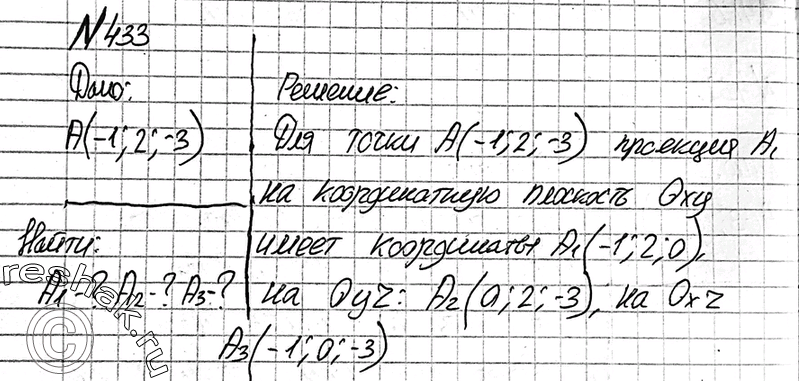 №433
Дано:
A(-1; 2; -3)
Найти:
A1-? A2-? A3-?
Решение:
Для точки A(-1; 2; -3) проекция A1
на координатную плоскость Oxy
имеет координаты A1(-1; 2; 0),
на Oyz: A2(0; 2; -3), на Oxz
A3(-1; 0; -3)
reshak.ru
©